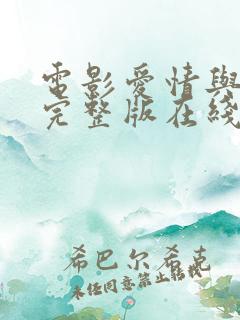 電影愛情與
完整版在綫
希巴尔希克
未经同意禁止转载